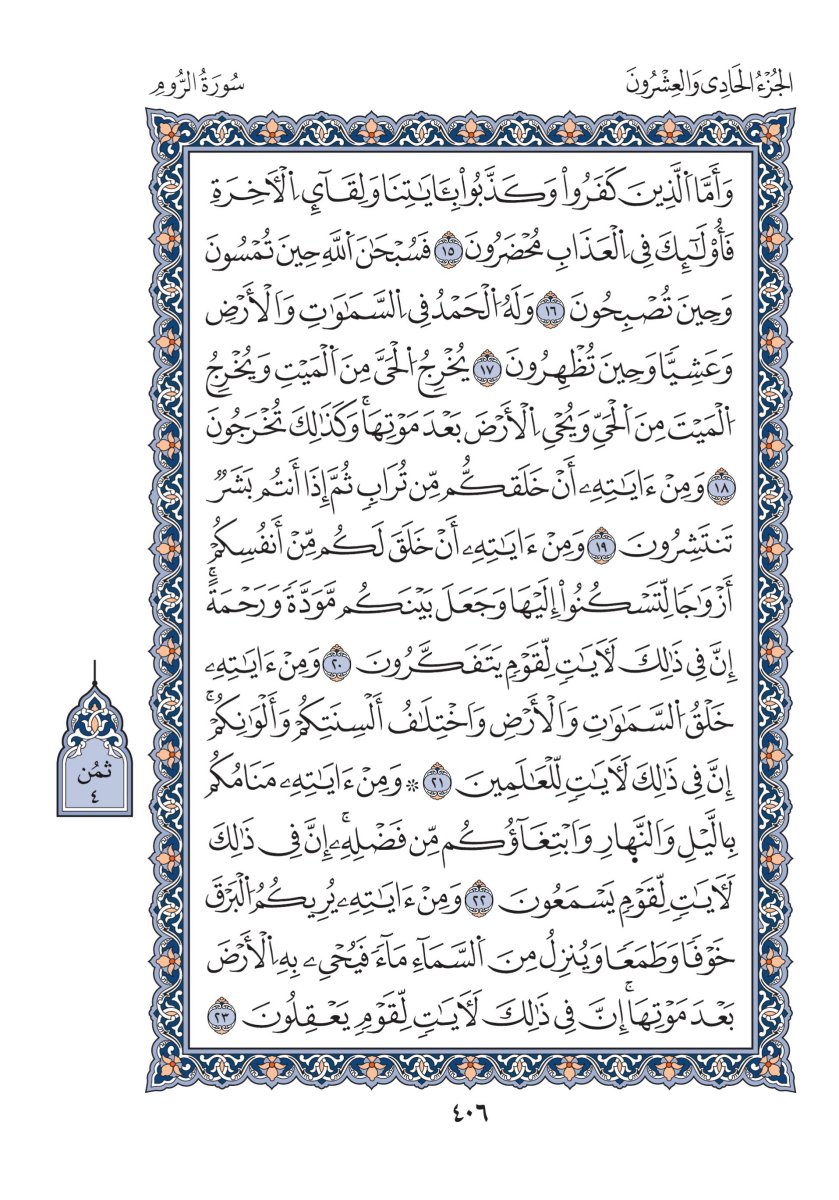 الجُزْءُ الحَادِى وَالعِشْرُونَ
سُورَةُ الرُّومِ
وَأَمَّا اَ۬لَّذِينَ كَفَرُواْ وَكَذَّبُواْ بِـَٔايَٰتِنَا وَلِقَآيِٕ اِ۬لْأٓخِرَةِ
فَأُوْلَٰٓئِكَ فِى اِ۬لْعَذَابِ مُحْضَرُونَ ١٥ فَسُبْحَٰنَ اَ۬للَّهِ حِينَ تُمْسُونَ
وَحِينَ تُصْبِحُونَ ١٦ وَلَهُ اُ۬لْحَمْدُ فِى اِ۬لسَّمَٰوَٰتِ وَاَلْأَرْضِ
وَعَشِيّٗا وَحِينَ تُظْهِرُونَ ١٧ يُخْرِجُ اُ۬لْحَىَّ مِنَ اَ۬لْمَيْتِ وَيُخْرِجُ
اُ۬لْمَيْتَ مِنَ اَ۬لْحَىِّ وَيُحْىِ اِ۬لْأَرْضَ بَعْدَ مَوْتِهَاۚ وَكَذَٰلِكَ تُخْرَجُونَ
١٨ وَمِنْ ءَايَٰتِهِۦ أَنْ خَلَقَكُم مِّن تُرَابٖ ثُمَّ إِذَا أَنتُم بَشَرٞ
تَنتَشِرُونَ ١٩ وَمِنْ ءَايَٰتِهِۦ أَنْ خَلَقَ لَكُم مِّنْ أَنفُسِكُمْ
أَزْوَٰجٗا لِّتَسْكُنُواْ إِلَيْهَا وَجَعَلَ بَيْنَكُم مَّوَدَّةٗ وَرَحْمَةًۚ
إِنَّ فِى ذَٰلِكَ لَأٓيَٰتٖ لِّقَوْمٖ يَتَفَكَّرُونَ ٢٠ وَمِنْ ءَايَٰتِهِۦ
خَلْقُ اُ۬لسَّمَٰوَٰتِ وَاَلْأَرْضِ وَاَخْتِلَٰفُ أَلْسِنَتِكُمْ وَأَلْوَٰنِكُمْۚ
إِنَّ فِى ذَٰلِكَ لَأٓيَٰتٖ لِّلْعَٰلَمِينَ ٢١ ۞ وَمِنْ ءَايَٰتِهِۦ مَنَامُكُم
بِالَّيْلِ وَاَلنَّهارِ وَاَبْتِغَآؤُكُم مِّن فَضْلِهِۦۚ إِنَّ فِى ذَٰلِكَ
لَأٓيَٰتٖ لِّقَوْمٖ يَسْمَعُونَ ٢٢ وَمِنْ ءَايَٰتِهِۦ يُرِيكُمُ اُ۬لْبَرْقَ
خَوْفٗا وَطَمَعٗا وَيُنزِلُ مِنَ اَ۬لسَّمَآءِ مَآءٗ فَيُحْىِۦ بِهِ اِ۬لْأَرْضَ
بَعْدَ مَوْتِهَاۚ إِنَّ فِى ذَٰلِكَ لَأٓيَٰتٖ لِّقَوْمٖ يَعْقِلُونَ ٢٣
ثمُن
٤
٤٠٦